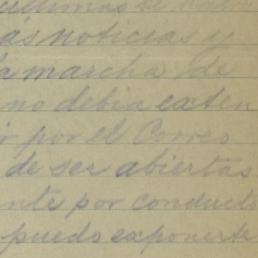 ultimas se
ás noticias y
la marcha de
no debia exten
r por el Correo
de ser abiertas
nte por conducto
puedo exponerte